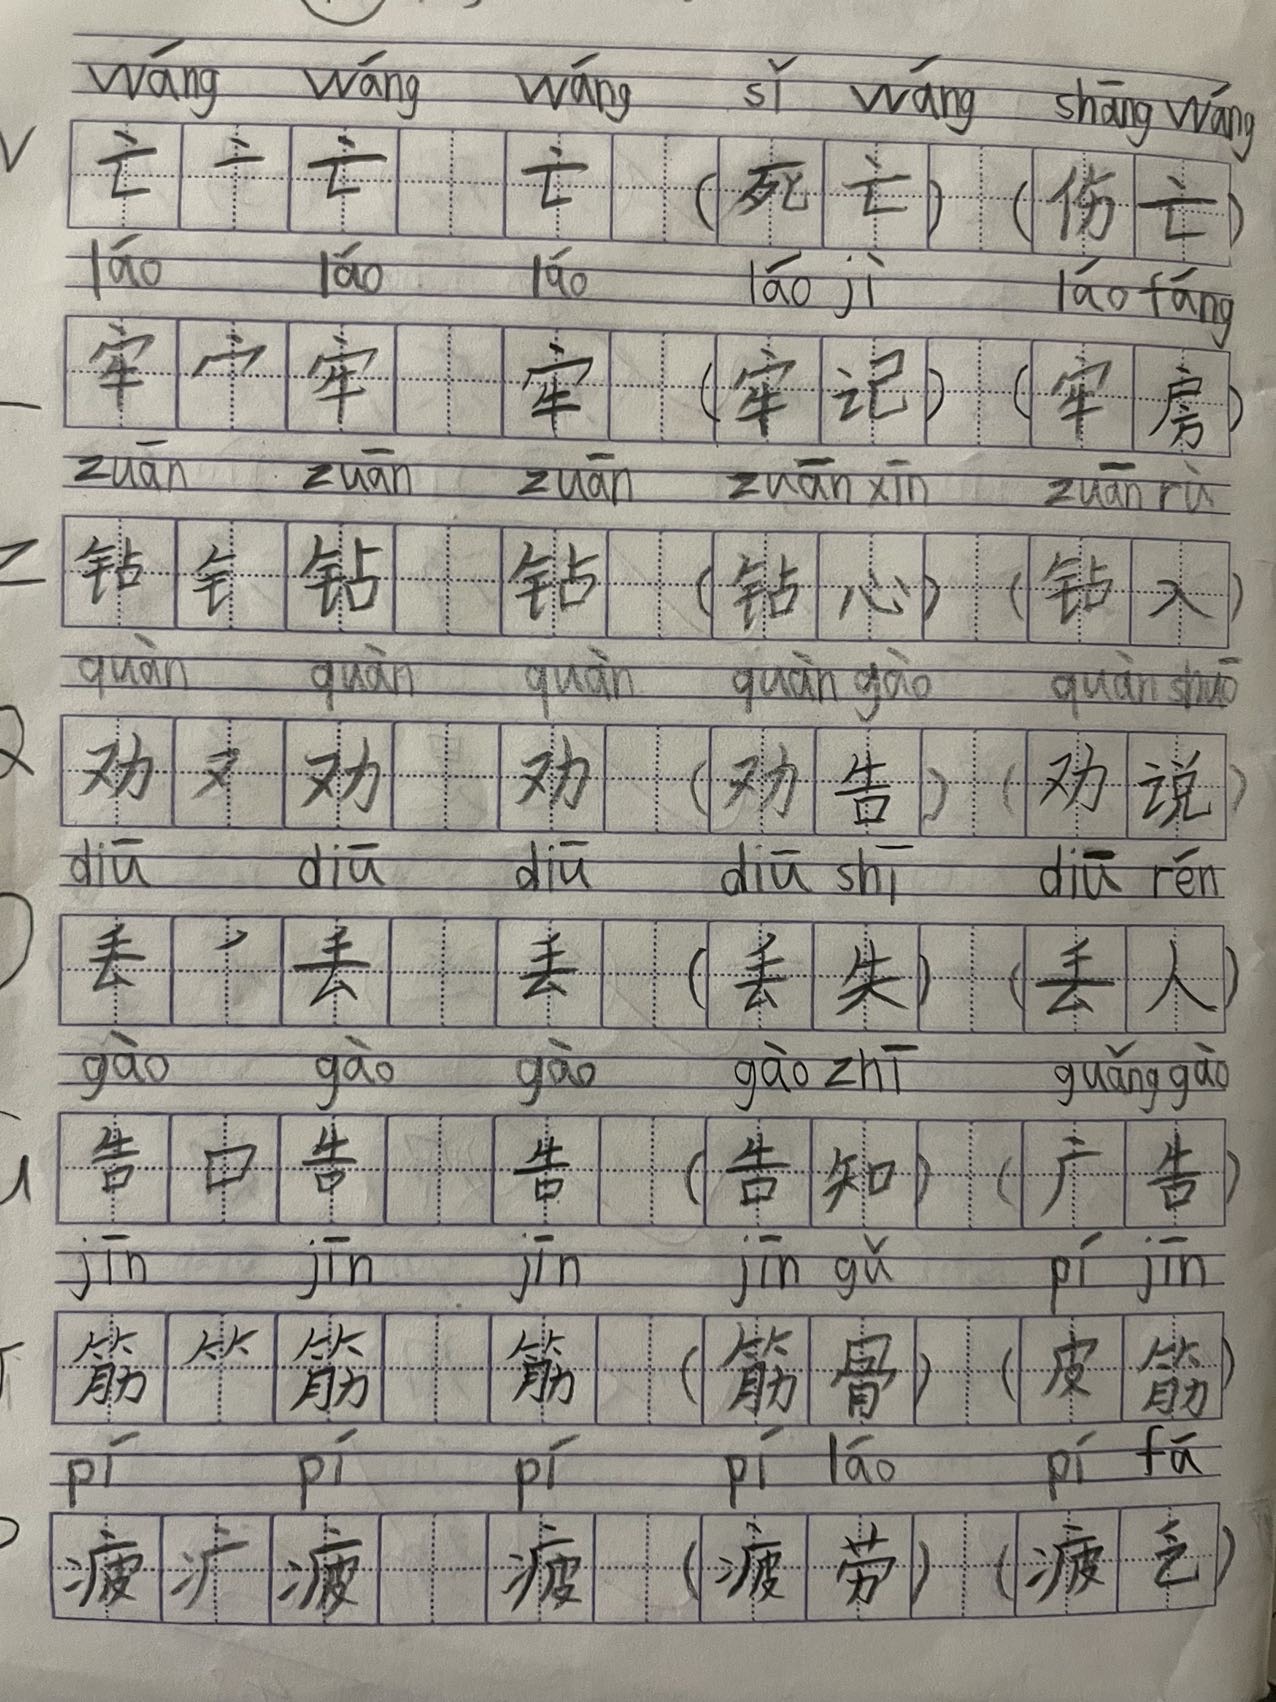 wáng wáng wáng sǐ wáng shāng wáng
亡 亠 亡 亡 (死亡) (伤亡)
láo láo láo láo jì láo fáng
牢 宀 牢 牢 (牢记) (牢房)
zuān zuān zuān zuān xīn zuān rù
钻 钅 钻 钻 (钻心) (钻入)
quàn quàn quàn quàn gào quàn shuō
劝 又 劝 劝 (劝告) (劝说)
diū diū diū diū shī diū rén
丢 丿 丢 丢 (丢失) (丢人)
gào gào gào gào zhī guǎng gào
告 口 告 告 (告知) (广告)
jīn jīn jīn jīn gǔ pí jīn
筋 ⺮ 筋 筋 (筋骨) (皮筋)
pí pí pí pí láo pí fá
疲 疒 疲 疲 (疲劳) (疲乏)